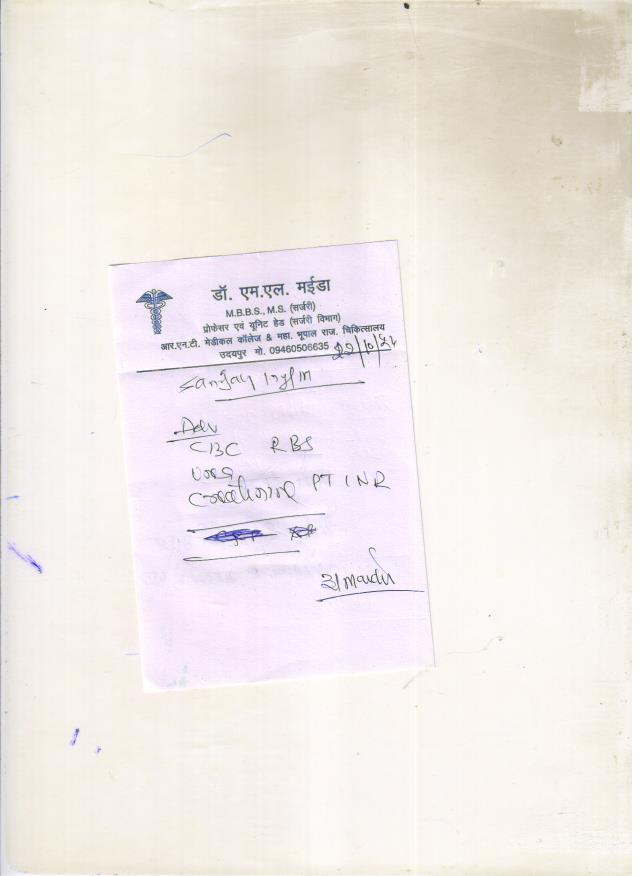 डॉ. एम.एल. मईडा
M.B.B.S., M.S. (सर्जरी)
प्रोफेसर एवं यूनिट हेड (सर्जरी विभाग)
आर.एन.टी. मेडीकल कॉलेज & महा. भूपाल राज. चिकित्सालय
उदयपुर मो. 09460506635
Sanjay
Adv
CBC RBS
Urea
Creatinine PT INR